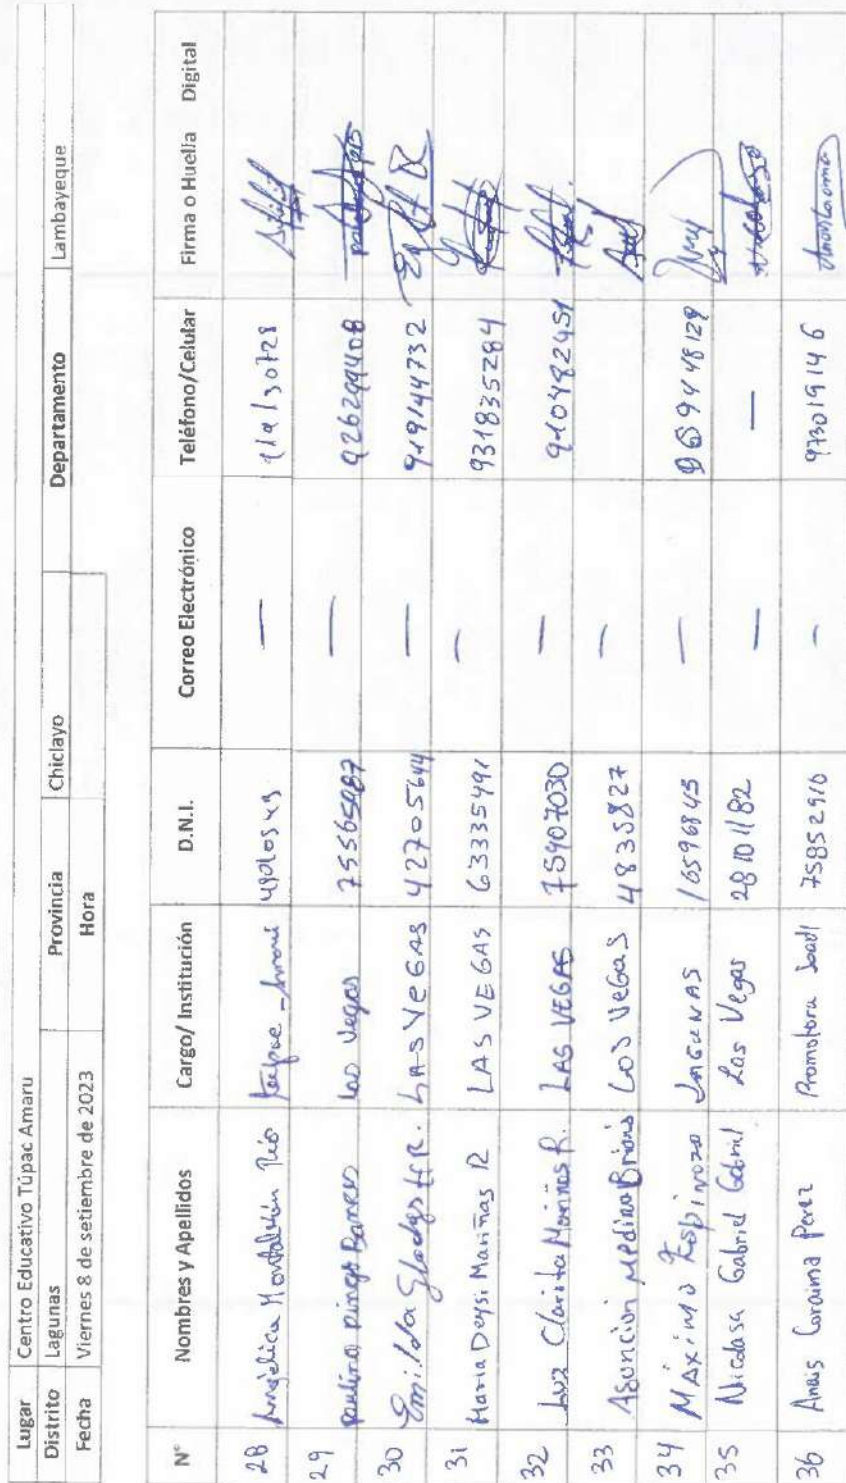 Lugar Centro Educativo Túpac Amaru
Distrito Lagunas Provincia Chiclayo Departamento Lambayeque
Fecha Viernes 8 de setiembre de 2023 Hora
N° Nombres y Apellidos Cargo/ Institución D.N.I. Correo Electrónico Teléfono/Celular Firma o Huella Digital
28 Angélica Montalván —
29 Paulino Pingo Las Vegas 75565987 — 926299408
30 Emilda Gladys LAS VEGAS 42705644 — 919144732
31 Maria Deysi Mariñas R LAS VEGAS 63335491 — 931835284
32 Luz Clarita Mariñas R. LAS VEGAS 75907030 — 910482451
33 Asuncion Medina LOS VeGaS 4835827 —
34 MÁXIMO Espinoza LAGUNAS 16596845 — 969448129
35 Nicolasa Gabriel Gabriel Las Vegas 28101182 — —
36 Anais Coraima Perez Promotora 75852910 — 973019146